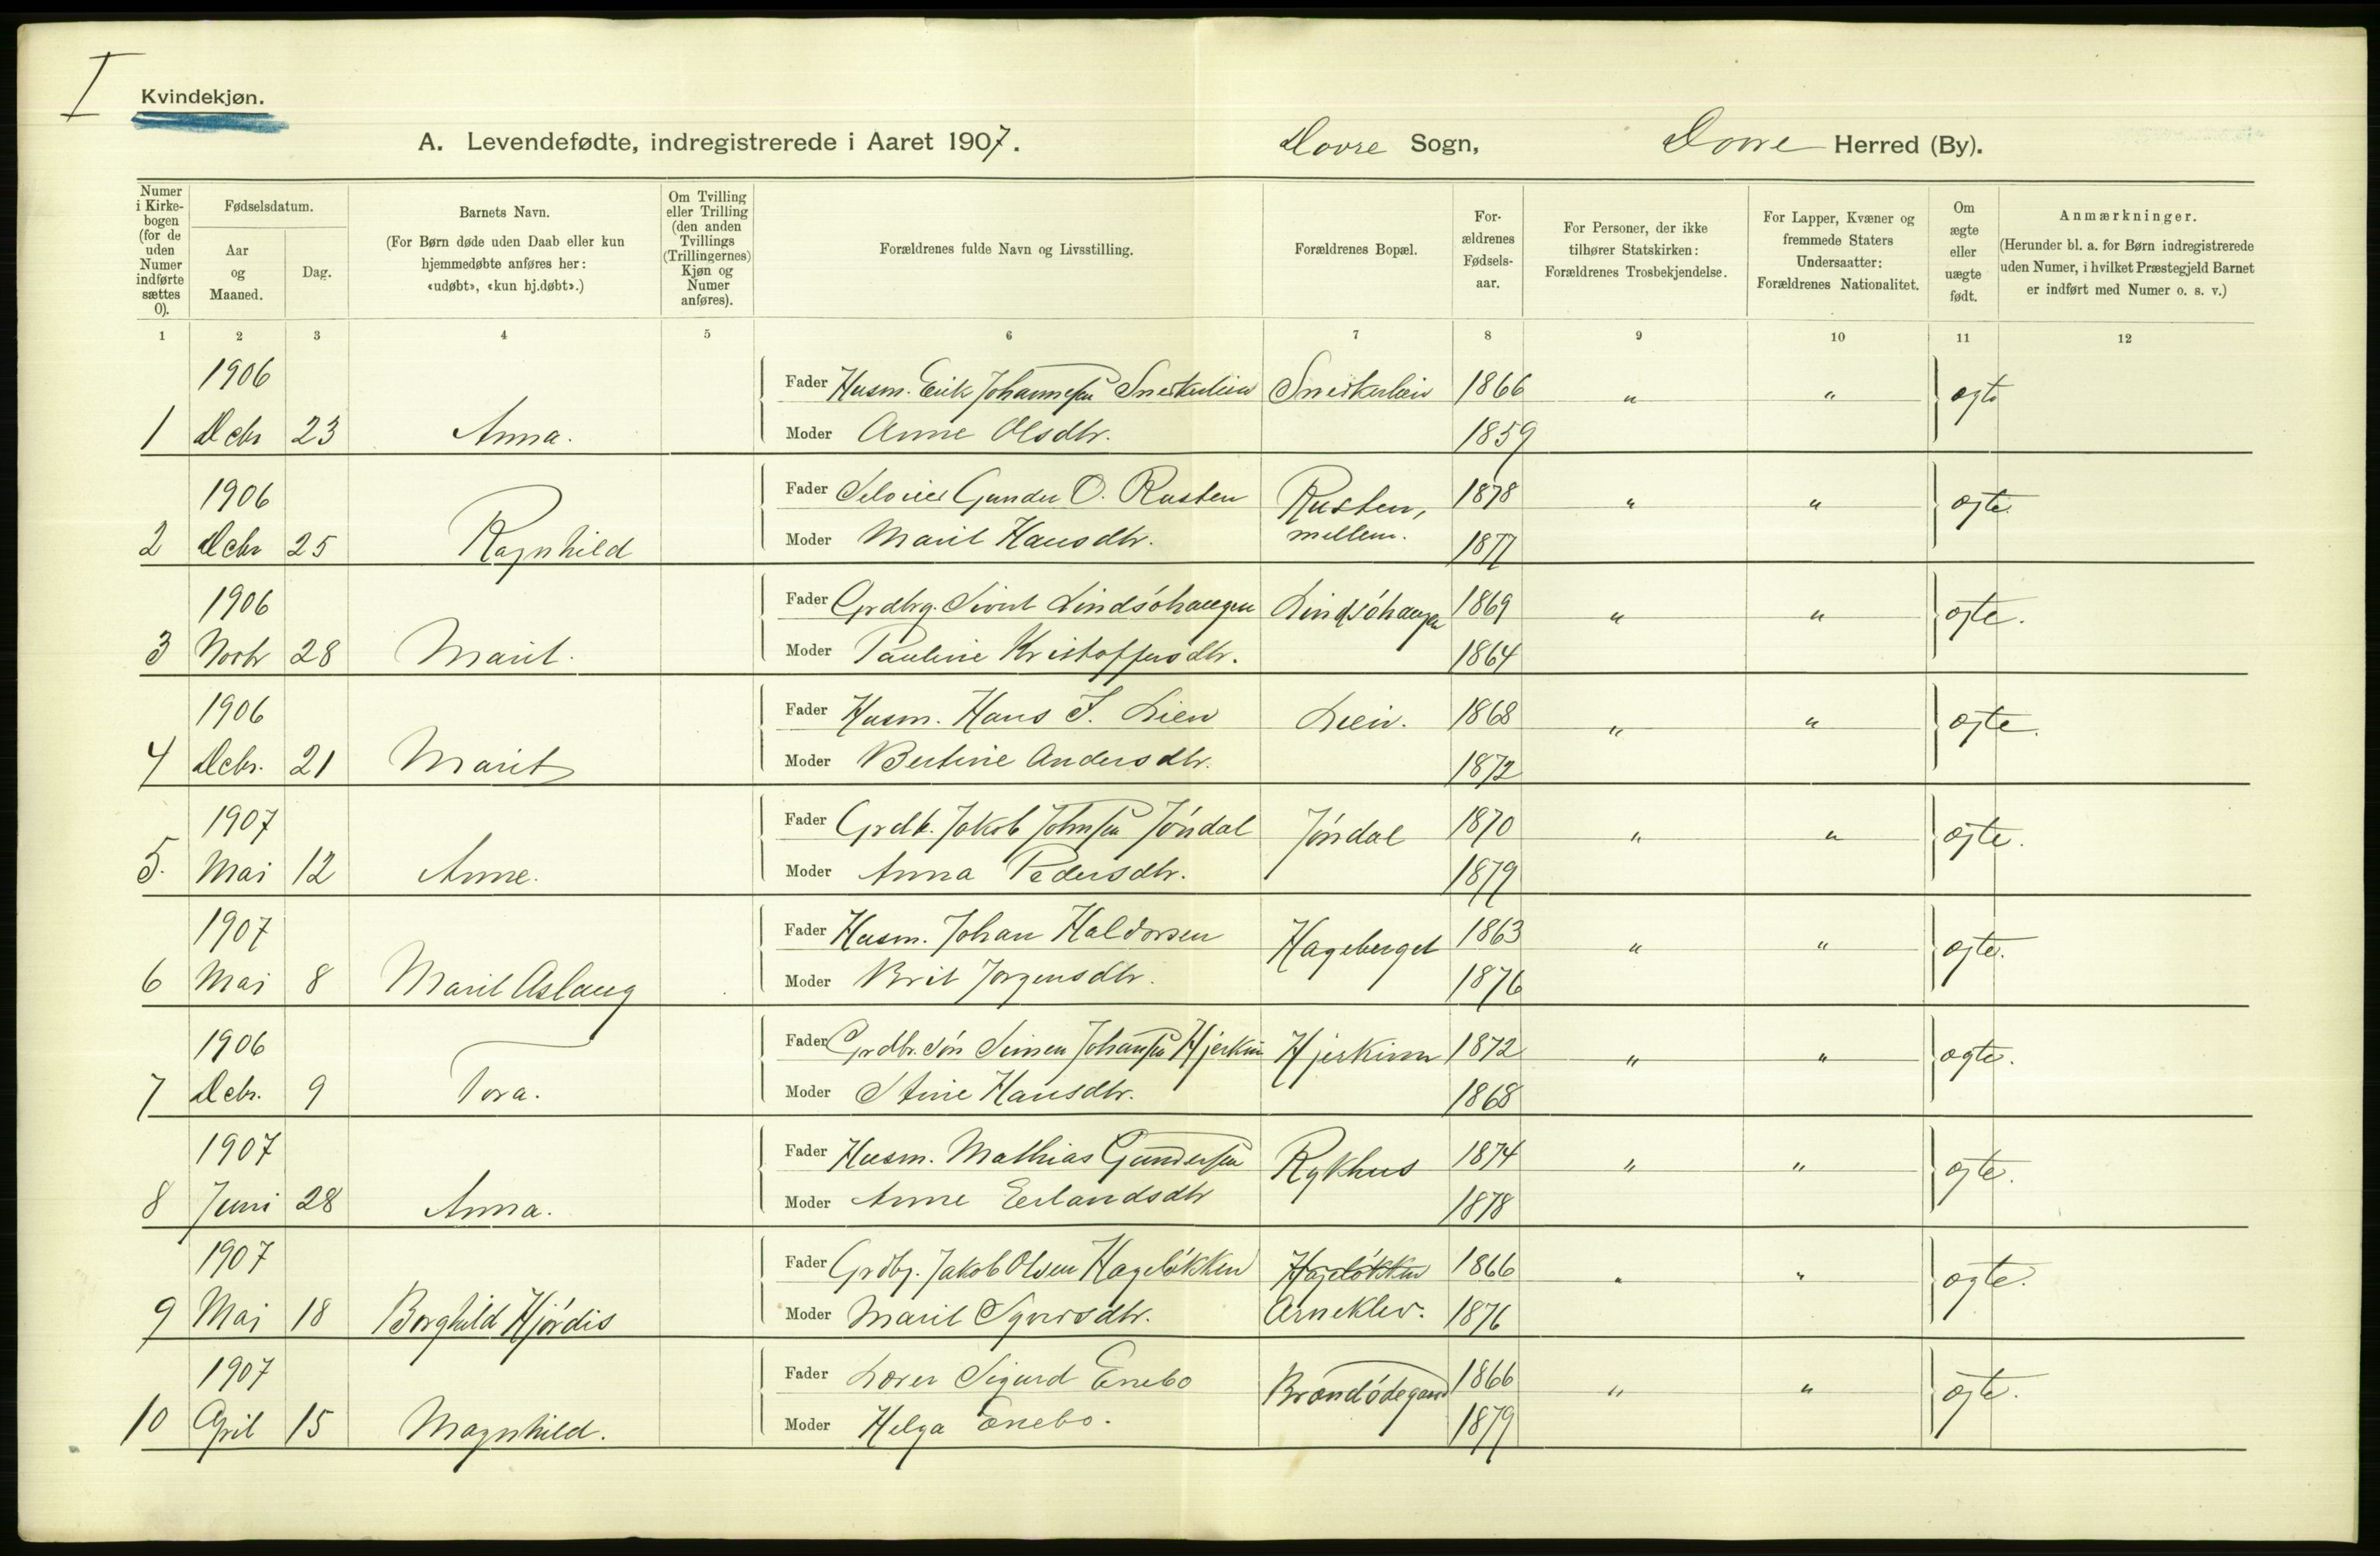 I
Kvindekjøn.
A. Levendefødte, indregistrerede i Aaret 1907. Dovre Sogn, Dovre Herred (By).
Numer i Kirkebogen (for de uden Numer indførte sættes 0). Fødselsdatum. Aar og Maaned. Dag. Barnets Navn. (For Børn døde uden Daab eller kun hjemmedøbte anføres her: «udøbt», «kun hj.døbt».) Om Tvilling eller Trilling (den anden Tvillings (Trillingernes) Kjøn og Numer anføres). Forældrenes fulde Navn og Livsstilling. Forældrenes Bopæl. Forældrenes Fødselsaar. For Personer, der ikke tilhører Statskirken: Forældrenes Trosbekjendelse. For Lapper, Kvæner og fremmede Staters Undersaatter: Forældrenes Nationalitet. Om ægte eller uægte født. Anmærkninger. (Herunder bl. a. for Børn indregistrerede uden Numer, i hvilket Præstegjeld Barnet er indført med Numer o. s. v.)
1 2 3 4 5 6 7 8 9 10 11 12
1906 Fader Husm. Erik Johannesen Snekerlien Snekerlien 1866 " " ægte
1 Debr 23 Anna. Moder Anne Olsdtr. 1859
1906 Fader Selveier Gunder O. Rusten Rusten, 1878 " " ægte.
2 Debr 25 Ragnhild Moder Marit Hansdtr. mellem. 1877
1906 Fader Grdbrg. Sivert Lindsöhaugen Lindsöhaugen 1869 " " ægte.
3 Novbr 28 Marit. Moder Pauline Kristoffersdtr. 1864
1906 Fader Husm. Hans S. Lien Lien. 1868 " " ægte.
4 Debr. 21 Marit Moder Bertine Andersdtr. 1872
1907 Fader Grdb. Jakob Johnsen Jöndal Jöndal 1870 " " ægte.
5. Mai 12 Anne. Moder Anna Pedersdtr. 1879
1907 Fader Husm. Johan Haldorsen Hageberget 1863 " " ægte.
6 Mai 8 Marit Aslaug Moder Brit Jorgensdtr. 1876
1906 Fader Grdbr. sön Simen Johansen Hjerkin Hjerkinn 1872 " " ægte.
7 Debr. 9 Tora. Moder Stine Hansdtr. 1868
1907 Fader Husm. Mathias Gundersen Rykhus 1874 " " ægte.
8 Juni 28 Anna. Moder Anne Erlandsdtr 1878
1907 Fader Grdbg. Jakob Olsen Hagelökken Hagelökken 1866 " " ægte.
9 Mai 18 Borghild Hjördis Moder Marit Syversdtr. Arneklev. 1876
1907 Fader Lærer Sigurd Enebo Brændödegaard 1866 " " ægte.
10 April 15 Magnhild. Moder Helga Enebo. 1879